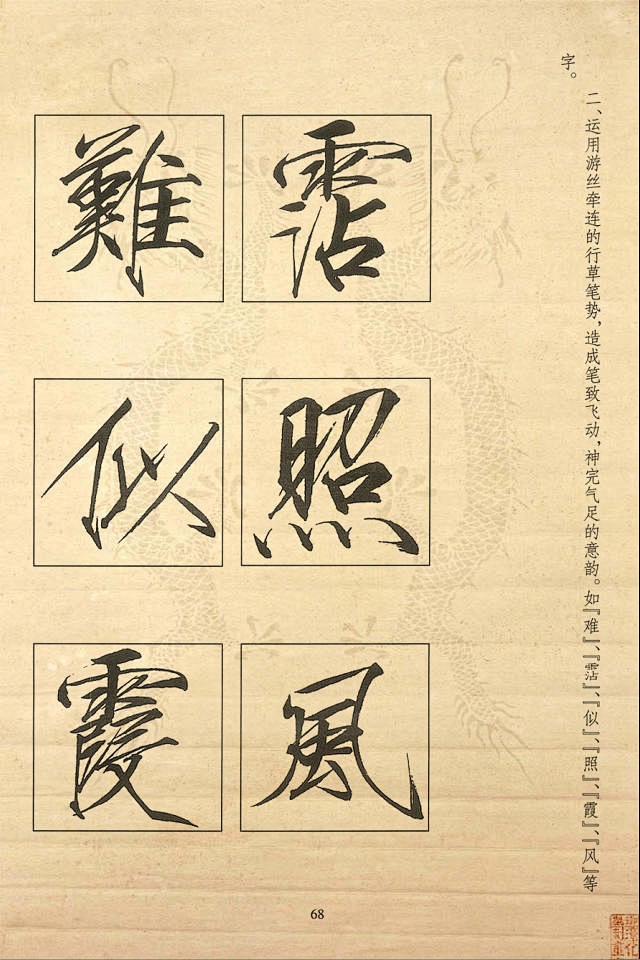 二、运用游丝牵连的行草笔势，造成笔致飞动，神完气足的意韵。如『难』、『霑』、『似』、『照』、『霞』、『风』等
字。
難 霑
似 照
霞 風
68